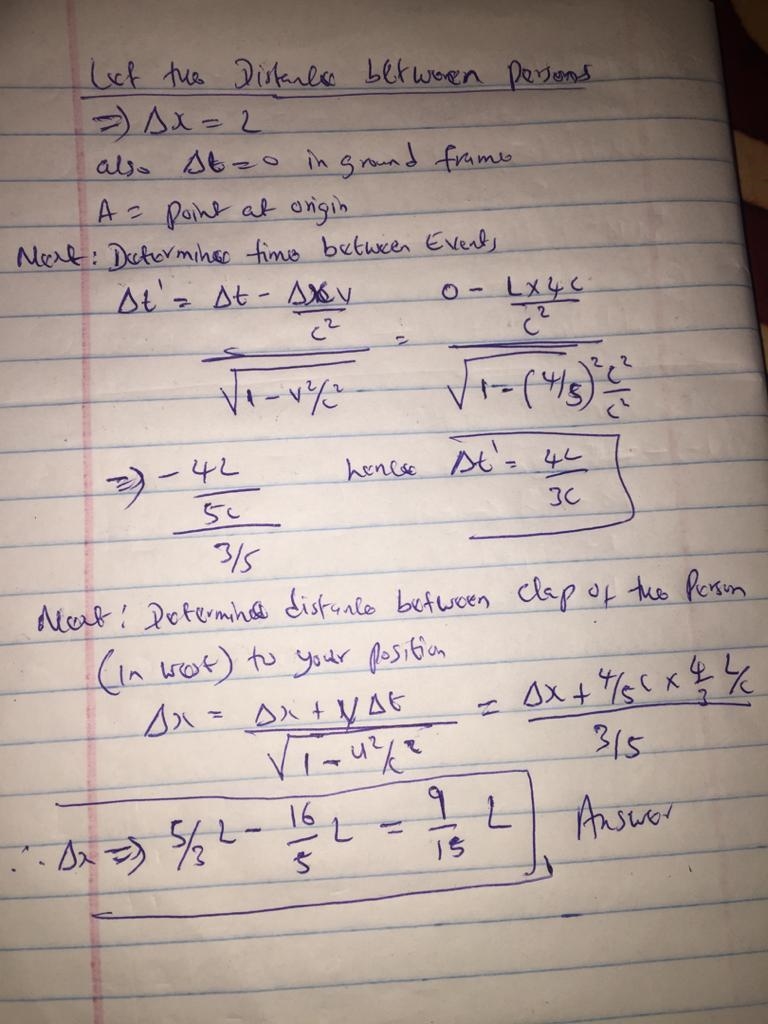 Let the Distance between persons
=> Δx = L
also Δt = 0 in ground frame
A = point at origin
Next: Determined time between Events
Δt' = (Δt - Δx v/c²) / √(1 - v²/c²) = (0 - L×4c/c²) / √(1 - (4/5)² c²/c²)
=> (-4L/5c) / (3/5) hence Δt' = 4L/3c
Next: Determined distance between clap of the Person
(In west) to your position
Δx = (Δx + VΔt) / √(1 - u²/c²) = (Δx + 4/5 c × 4/3 L/c) / (3/5)
∴ Δx => 5/3 L - 16/5 L = 9/15 L Answer